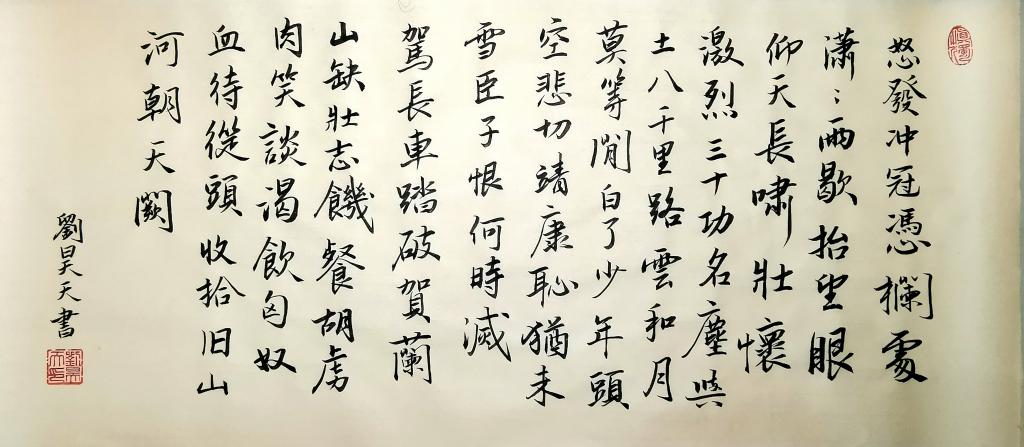 怒發冲冠馮欄處
潇〻雨歇抬望眼
仰天長啸壯懷
激烈三十功名塵与
土八千里路雲和月
莫等閒白了少年頭
空悲切靖康恥猶未
雪臣子恨何時滅
駕長車踏破賀蘭
山缺壯志饑餐胡虏
肉笑談渴飲匈奴
血待從頭收拾旧山
河朝天闕
劉昊天書